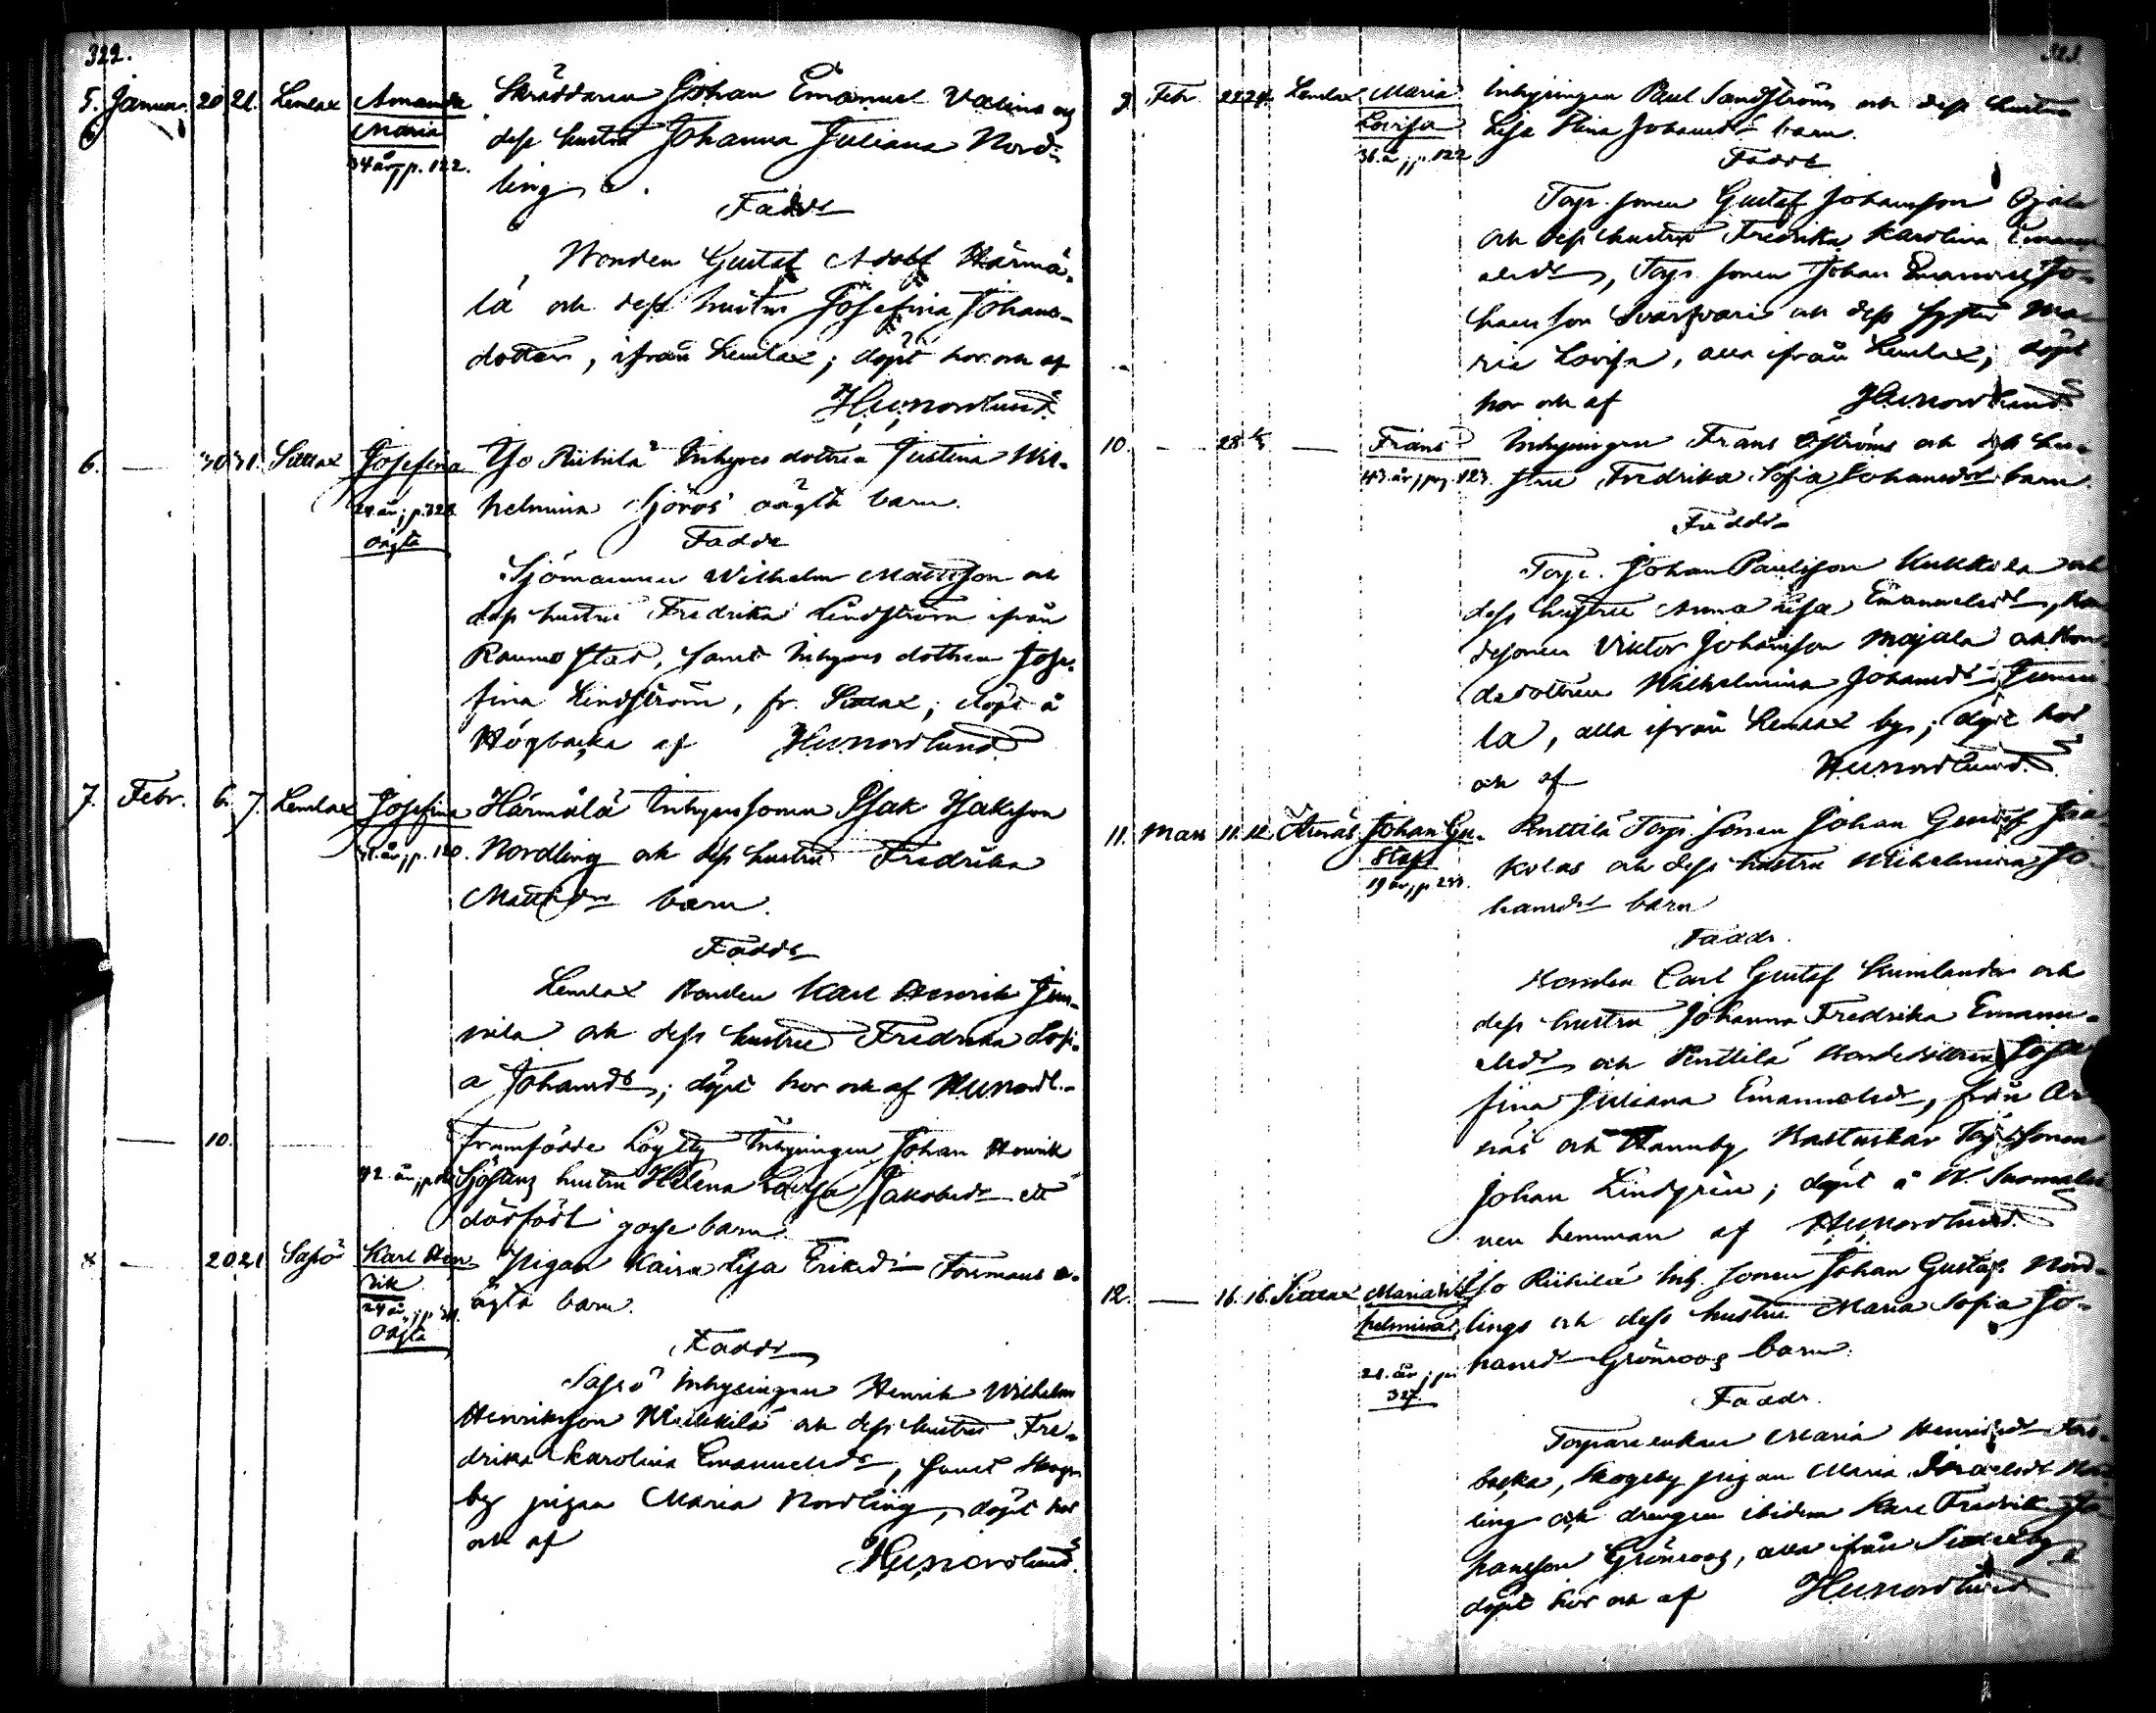 322.
5. Januar. 20 21. Lemlax Amanda Skräddaren Johan Emanuel Valins og
Maria dess hustru Johanna Juliana Nord-
34 år, p. 122. ling
Faddr
Bonden Gustaf Adolf Härmä-
lä och dess hustru Josefina Johans-
dotter, ifrån Lemlax; döpt hor och af
HUNordlund.
6. — 30 31. Sittlax Josefina Yso Riihilä Inhyses dottren Justina Wil-
24 år, p. 328. helmina Sjöros oägta barn.
Oägta Faddr
Sjömannen Wilhelm Mattsson och
dess hustru Fredrika Lindström ifrån
Raumo stad, samt Inhyses dottren Jose-
fina Lindström, fr. Sittlax; döpt å
Högbacka af HUNordlund
7. Febr. 6. 7. Lemlax Josefina Härmälä Inhysessonen Isak Isaksson
år, p. 120. Nordling och dess hustru Fredrika
Mattsdr barn.
Faddr
Lemlax Bonden Karl Henrik Jun-
nila och dess hustru Fredrika Sofi-
a Johansdr; döpt hor och af HUNordl.
— 10. framfödde Löytty Inhysingen Johan Henrik
42 år, Sjöstens hustru Helena Lovisa Jakobsdr ett
dödfödt gosse barn.
8 — 20 21 Sapsö Karl Hen- Pigan Kaisa Lisa Eriksdr Forsmans o-
rik ägta barn.
24 år, p.
Oägta
Faddr
Sapsö Inhysingen Henrik Wilhelm
Henriksson Mikkilä och dess hustru Fre-
drika Karolina Emanuelsdr, samt Skogs
by pigan Maria Nordling, döpt hor
och af HUNordlund.
323
9. Febr. 22 24. Lemlax Maria Inhysingen Paul Sandströms och dess hustru
Lovisa Lisa Stina Johansdr barn.
36 år, p. 122 Faddr
Torp. sonen Gustaf Johansson Ojala
och dess hustru Fredrika Karolina Emanu-
elsdr, Torp. sonen Johan Emanuel Jo-
hansson Svarfvari och dess syster Ma-
ria Lovisa, alla ifrån Lemlax, döpt
hor och af HUNordlund
10. — 28 1/3 — Frans Inhysingen Frans Öströms och dess hu-
43 år, pag. 123. stru Fredrika Sofia Johansdr barn.
Faddr
Torp. Johan Paulsson Kukkola och
dess hustru Anna Lisa Emanuelsdr, Bon-
desonen Viktor Johansson Majala och Bon-
dedottren Wilhelmina Johansdr Junni-
la, alla ifrån Lemlax by; döpt hor
och af HUNordlund.
11. Mars 11. 12. Årnäs Johan Gu- Penttilä Torp. sonen Johan Gustaf
staf kolas och dess hustru Wilhelmina Jo-
19 år, p. hansdr barn
Faddr.
Bonden Carl Gustaf Kumlander och
dess hustru Johanna Fredrika Emanu-
elsdr och Penttilä Bondedottren Jose-
fina Juliana Emanuelsdr, från År-
näs och Hannby Kastuskär Torpsonen
Johan Lindgren; döpt å W. Suomalai-
nen hemman af HUNordlund.
12. — 16. 16. Sittlax Maria Wil- Yso Riihilä Inh. sonen Johan Gustaf Nord-
helmina lings och dess hustru Maria Sofia Jo-
21 år; p. hansdr Grönroos barn.
327. Faddr.
Torpareenkan Maria Henriksdr
backa, Skogsby pigan Maria Israelsdr
ling och drengen ibidem Karl Fredrik Jo-
hansson Grönroos, alla ifrån Sittlax by
döpt hor och af HUNordlund